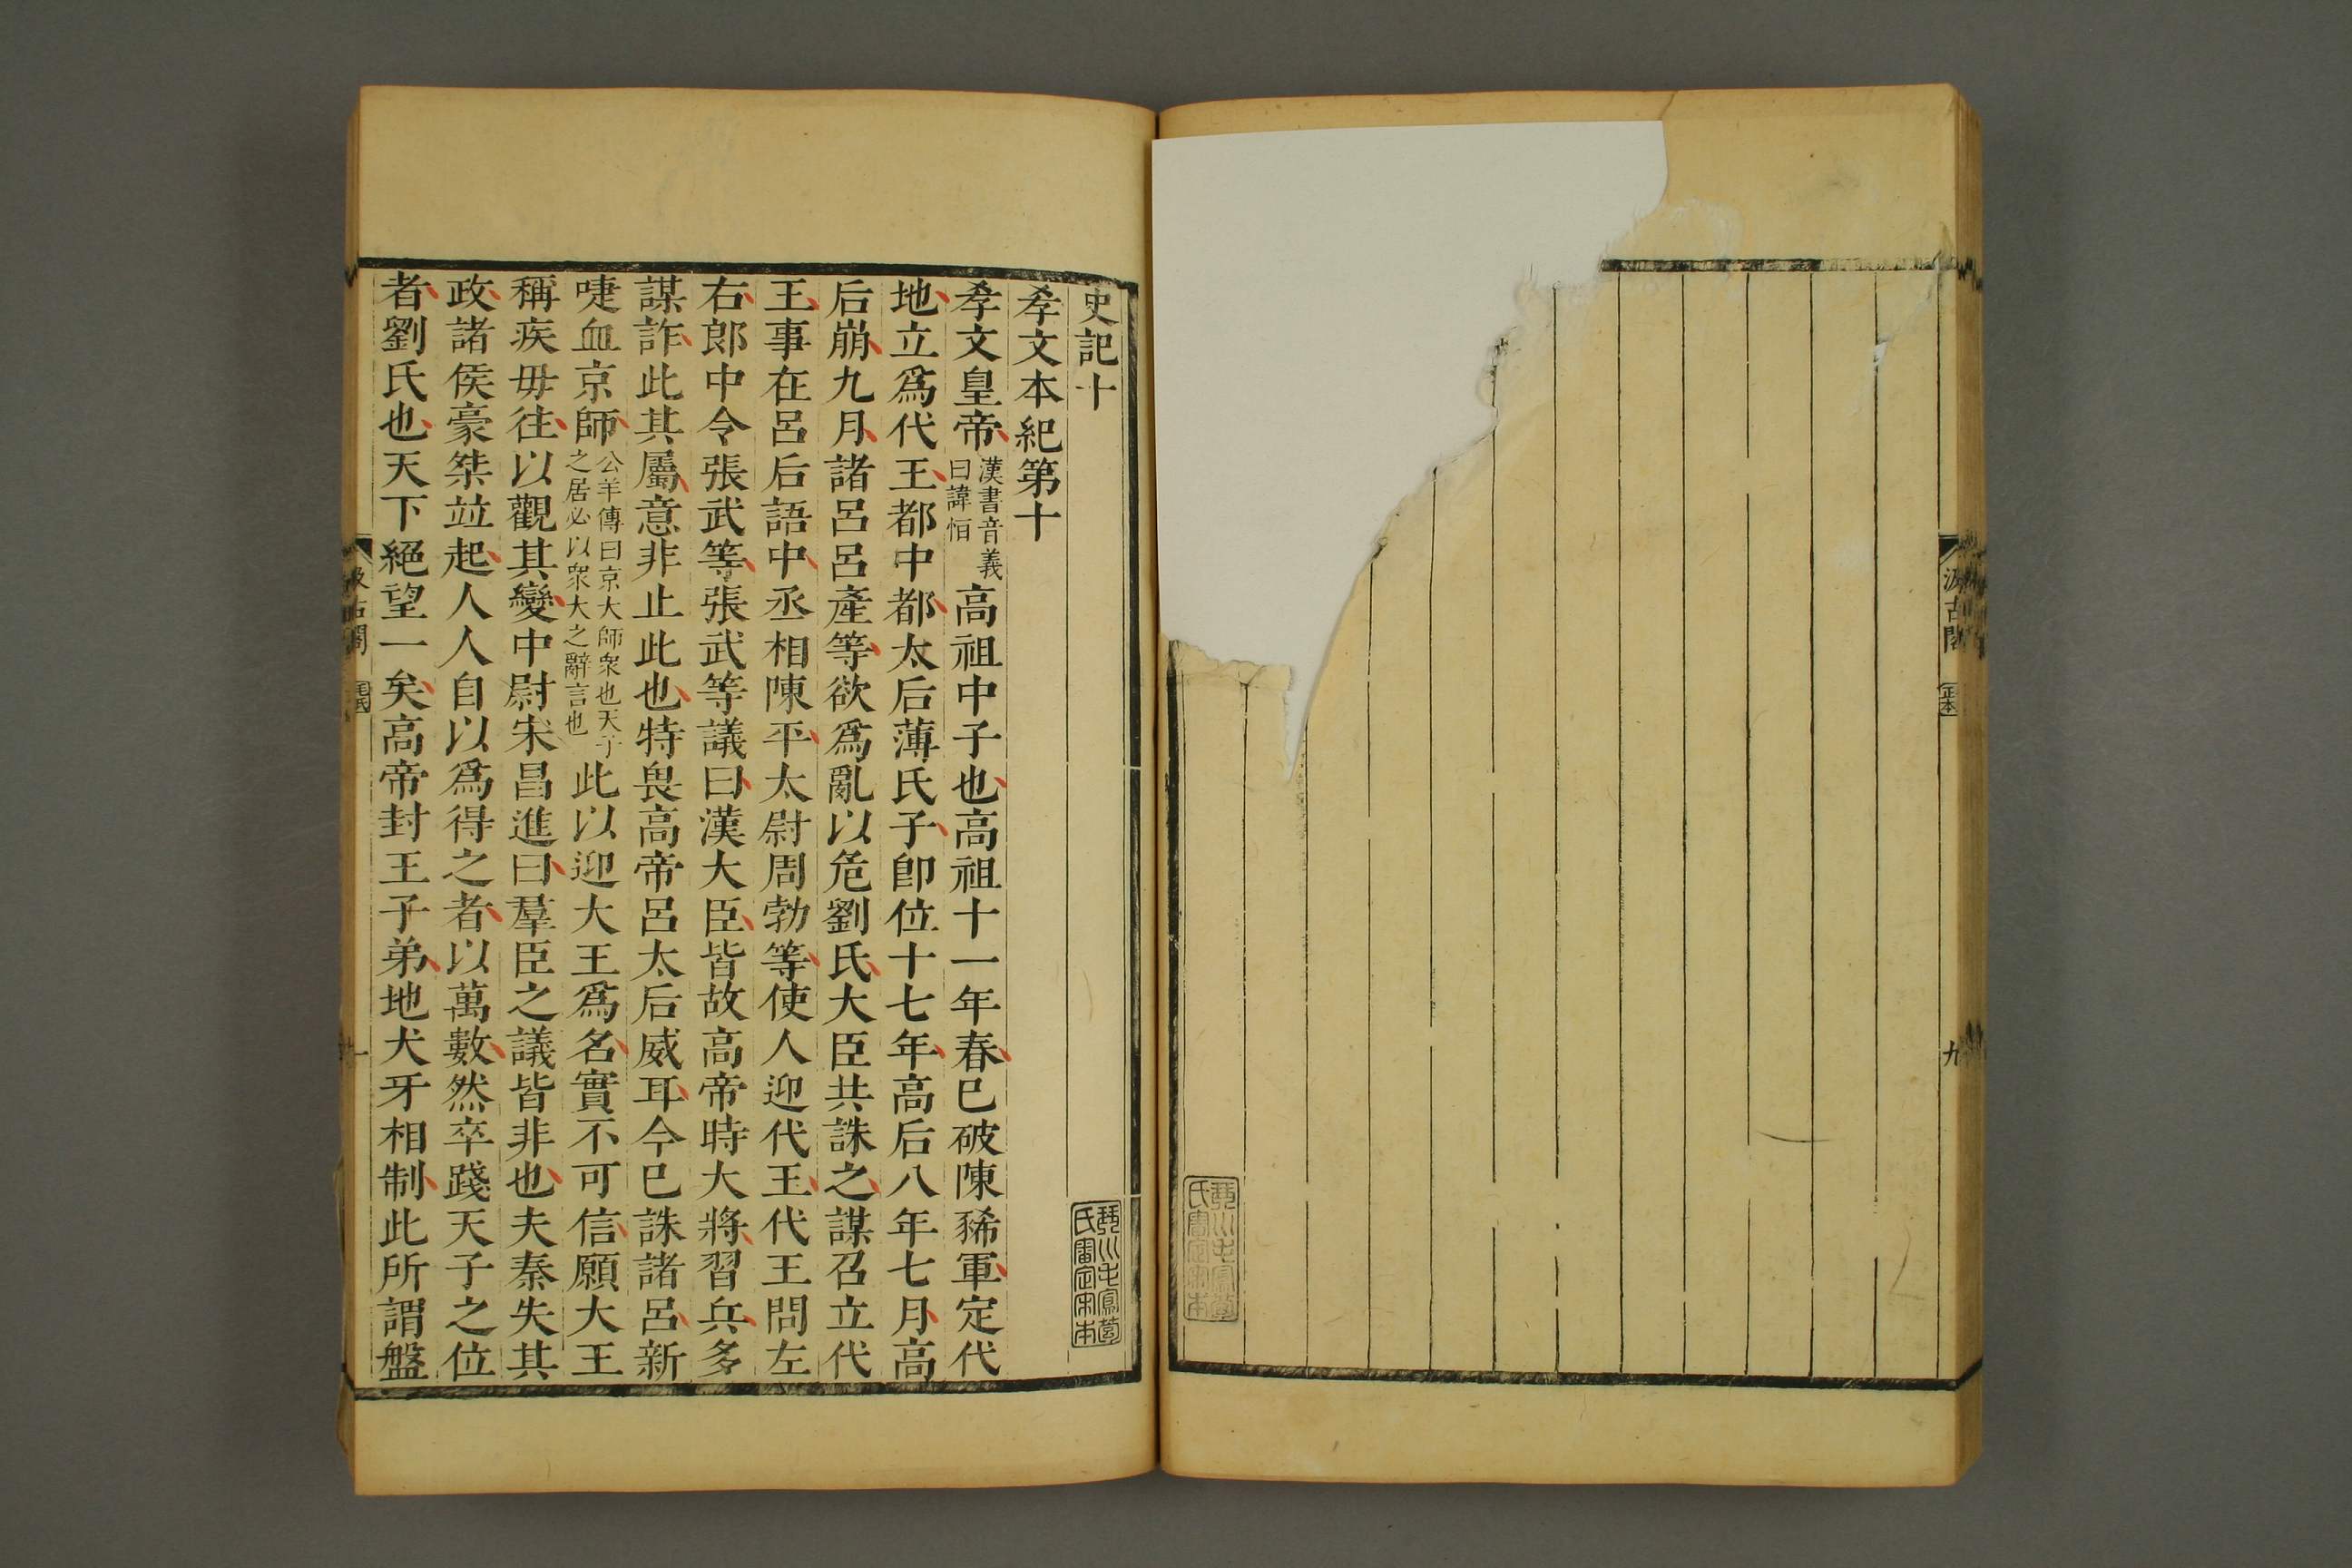 汲古閣
九
琴川毛鳳苞
氏審定宋本
史記十
琴川毛鳳苞
氏審定宋本
孝文本紀第十
孝文皇帝漢書音義曰諱恒高祖中子也高祖十一年春巳破陳豨軍定代
地立爲代王都中都太后薄氏子卽位十七年高后八年七月高
后崩九月諸呂呂產等欲爲亂以危劉氏大臣共誅之謀召立代
王事在呂后語中丞相陳平太尉周勃等使人迎代王代王問左
右郎中令張武等張武等議曰漢大臣皆故高帝時大將習兵多
謀詐此其屬意非止此也特畏高帝呂太后威耳今巳誅諸呂新
啑血京師公羊傳曰京大師衆也天子之居必以衆大之辭言也此以迎大王爲名實不可信願大王
稱疾毋往以觀其變中尉宋昌進曰羣臣之議皆非也夫秦失其
政諸侯豪桀竝起人人自以爲得之者以萬數然卒踐天子之位
者劉氏也天下絕望一矣高帝封王子弟地犬牙相制此所謂盤
汲古閣
一